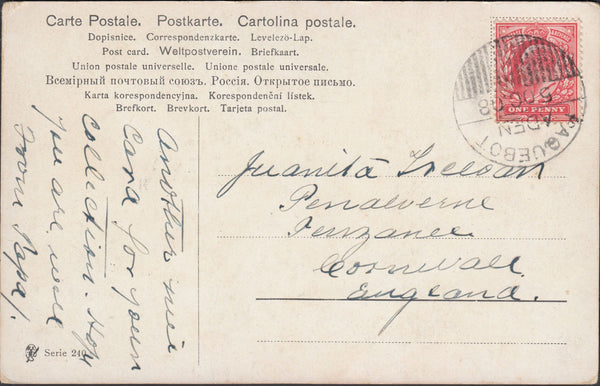 Carte Postale. Postkarte. Cartolina postale.
Dopisnice. Correspondenzkarte. Levelező-Lap.
Post card. Weltpostverein. Briefkaart.
Union postale universelle. Unione postale universale.
Всемірный почтовый союзъ. Россія. Открытое письмо.
Karta korespondencyjna. Korespondenční lístek.
Brefkort. Brevkort. Tarjeta postal.
Another nice
Card for your
Collection. Hope
you are well
From Papa/.
Juanita
Penalverne
Penzance
Cornwall.
England.
ONE PENNY
PAQUEBOT
ADEN
Serie 240